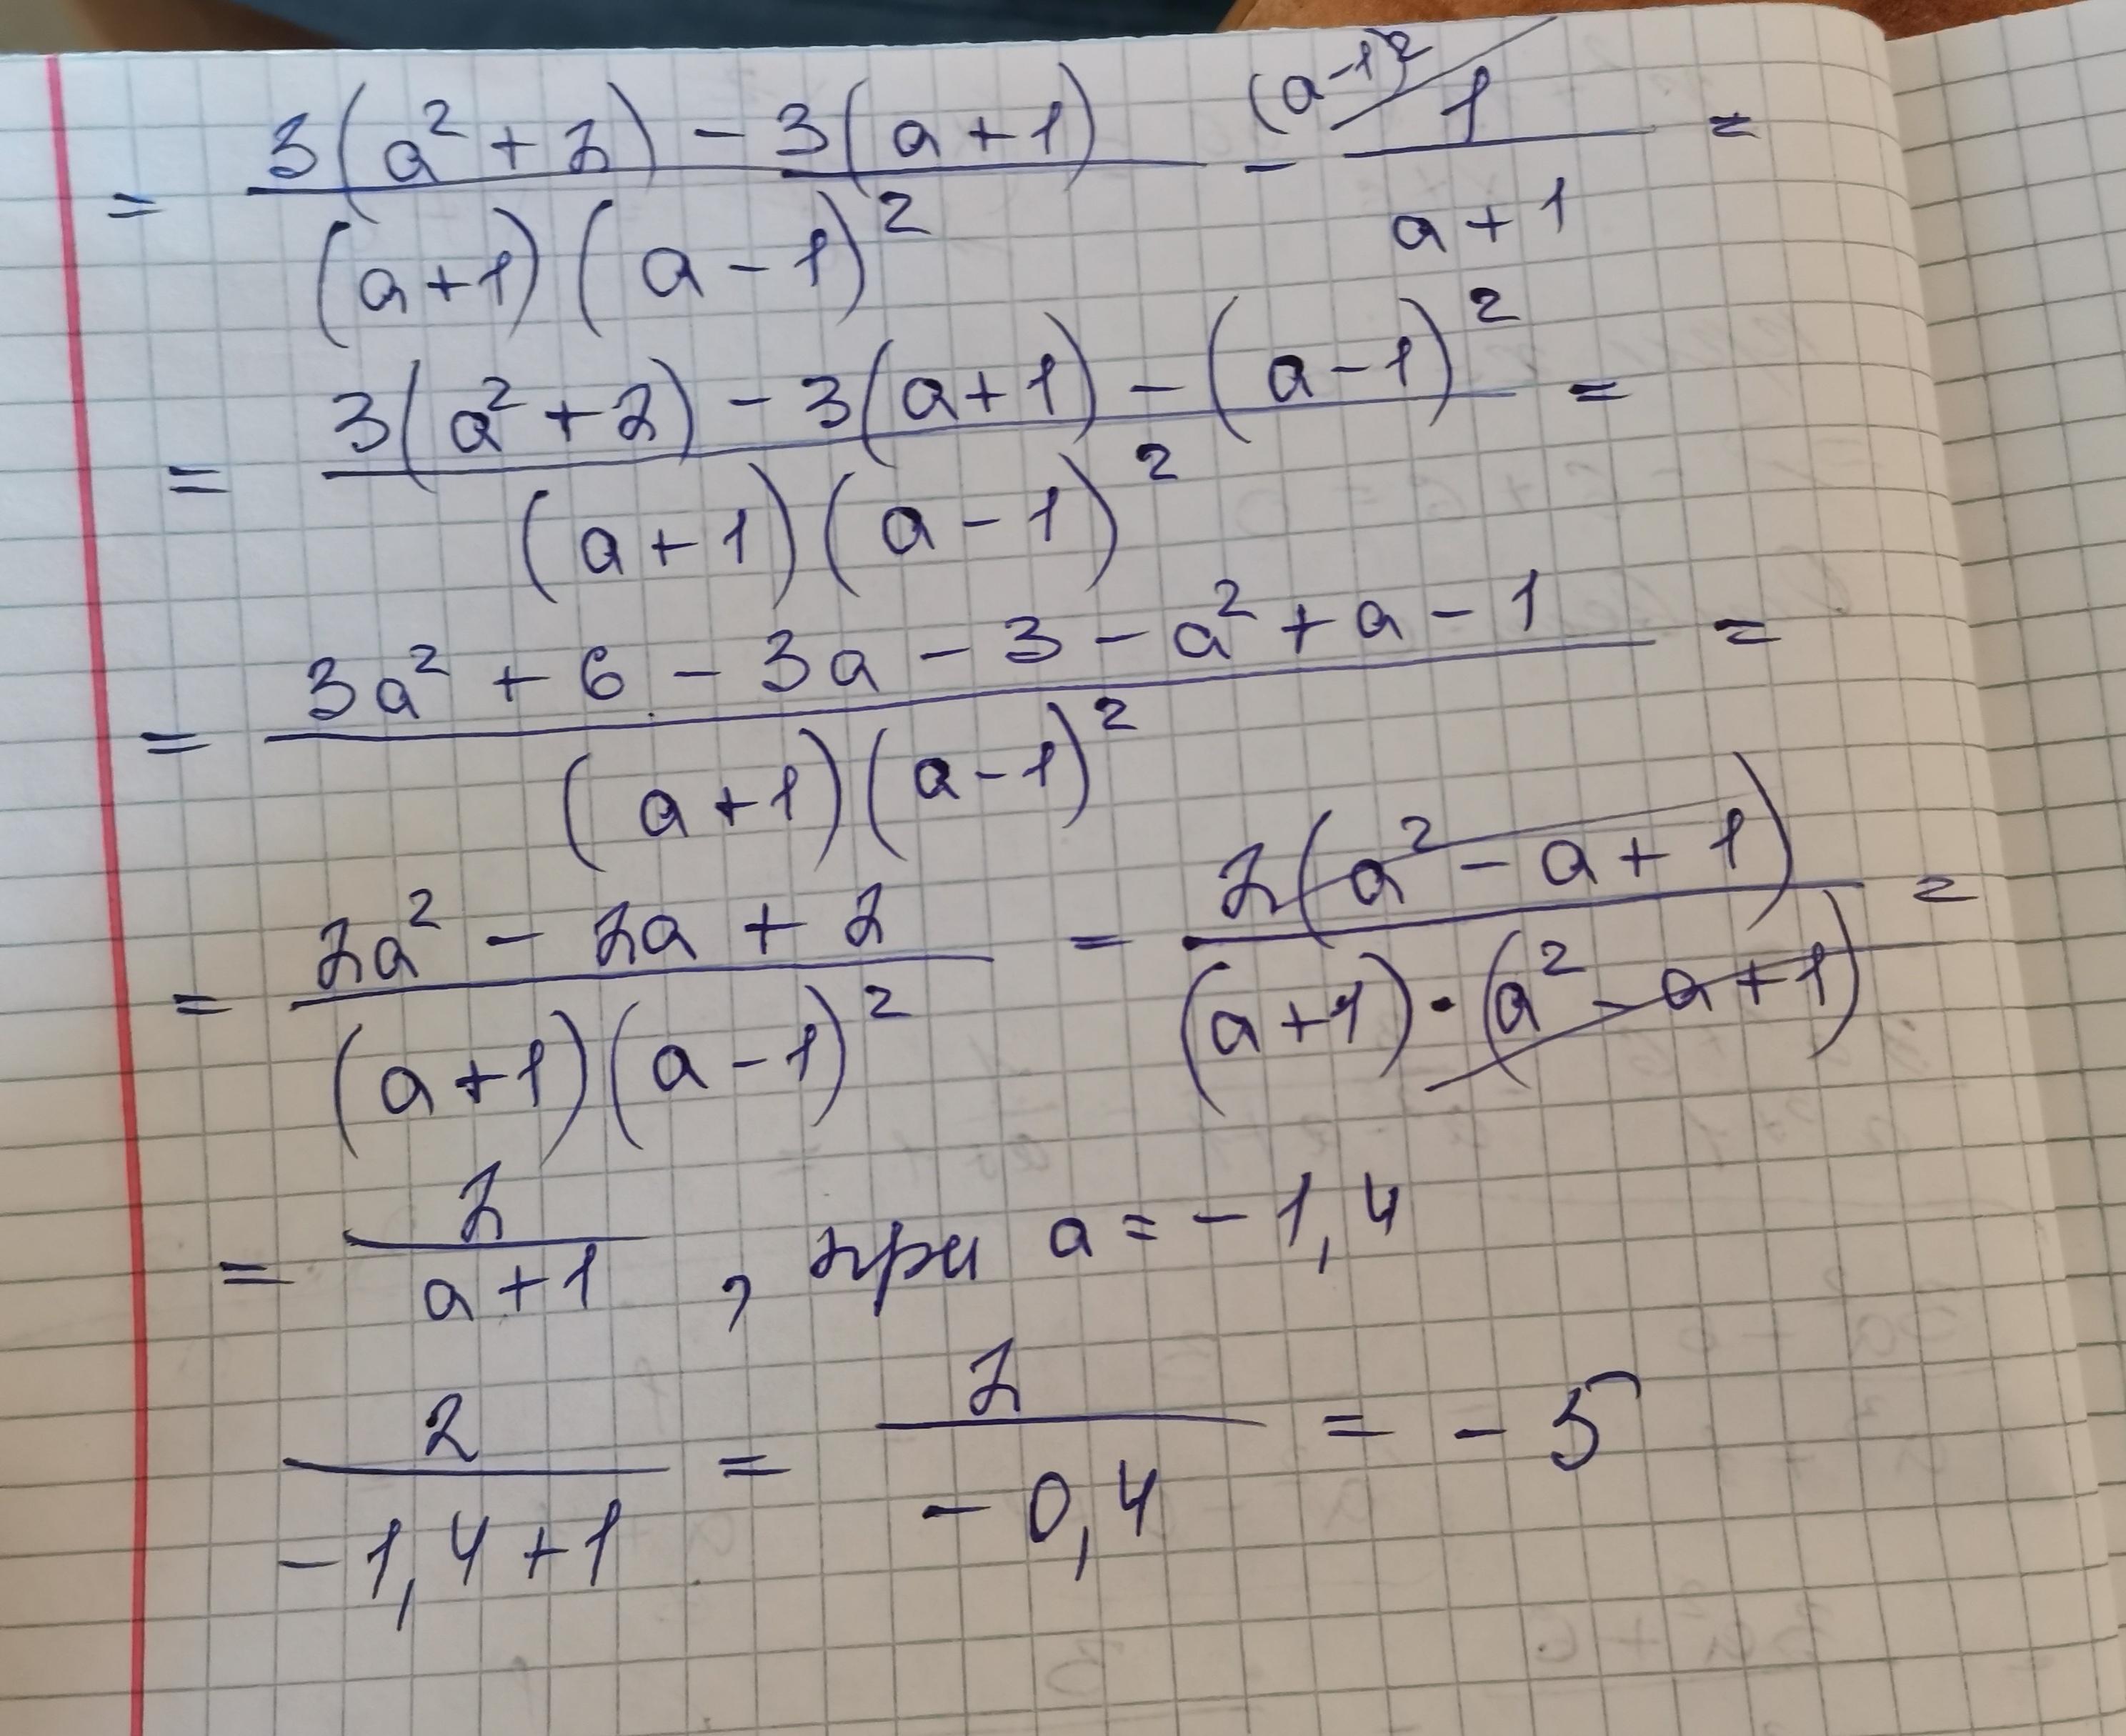 = (3(a² + 2) - 3(a + 1))/((a+1)(a-1)²) - (a-1)² 1/(a+1) =
= (3(a² + 2) - 3(a+1) - (a-1)²)/((a+1)(a-1)²) =
= (3a² + 6 - 3a - 3 - a² + a - 1)/((a+1)(a-1)²) =
= (2a² - 2a + 2)/((a+1)(a-1)²) = (2(a² - a + 1))/((a+1)·(a² - a + 1)) =
= 2/(a+1) , при a = -1,4
2/(-1,4+1) = 2/(-0,4) = -5